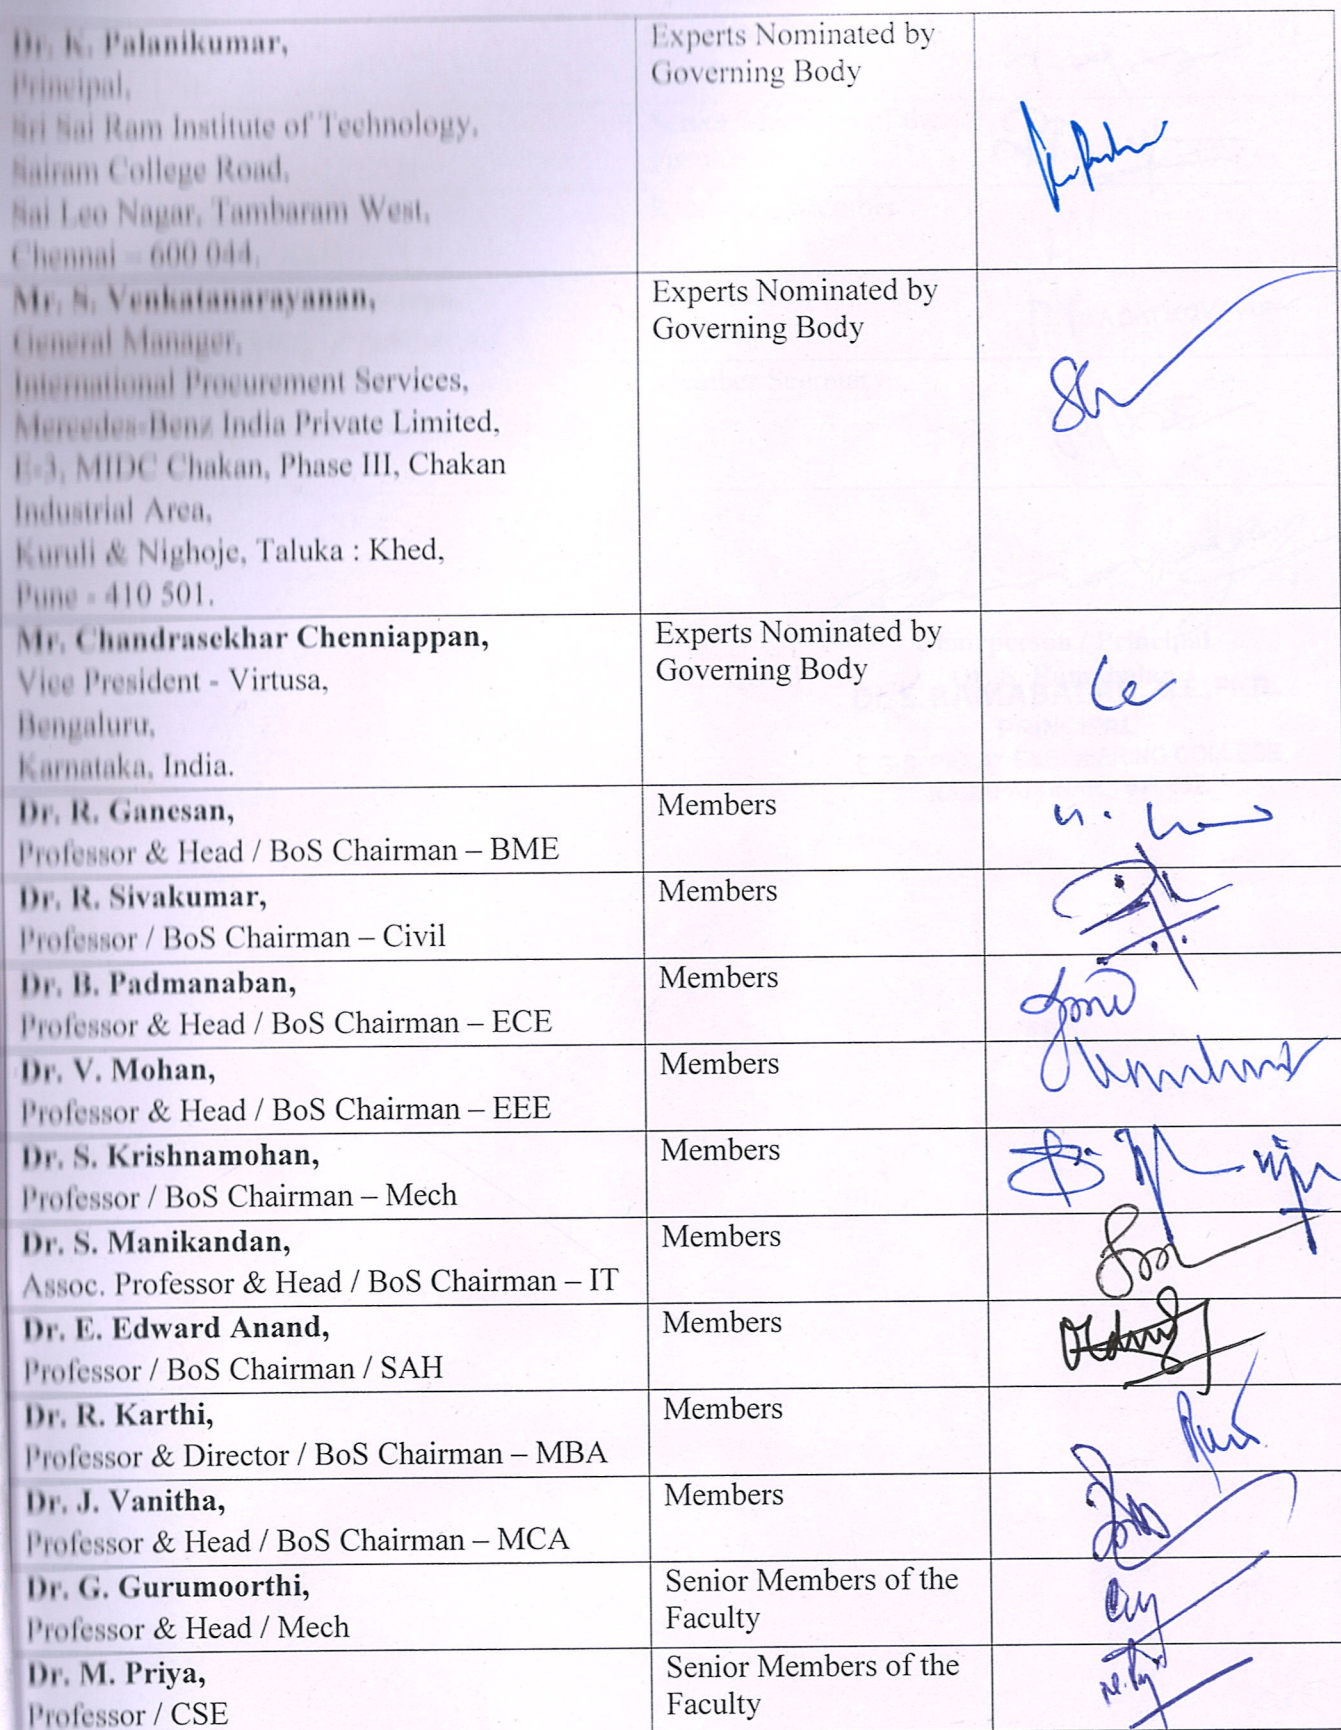 Dr. K. Palanikumar,
Principal,
Sri Sai Ram Institute of Technology,
Sairam College Road,
Sai Leo Nagar, Tambaram West,
Chennai – 600 044.
Experts Nominated by
Governing Body
Mr. S. Venkatanarayanan,
General Manager,
International Procurement Services,
Mercedes-Benz India Private Limited,
E-3, MIDC Chakan, Phase III, Chakan
Industrial Area,
Kuruli & Nighoje, Taluka : Khed,
Pune - 410 501.
Experts Nominated by
Governing Body
Mr. Chandrasekhar Chenniappan,
Vice President - Virtusa,
Bengaluru,
Karnataka, India.
Experts Nominated by
Governing Body
Dr. R. Ganesan,
Professor & Head / BoS Chairman – BME
Members
Dr. R. Sivakumar,
Professor / BoS Chairman – Civil
Members
Dr. B. Padmanaban,
Professor & Head / BoS Chairman – ECE
Members
Dr. V. Mohan,
Professor & Head / BoS Chairman – EEE
Members
Dr. S. Krishnamohan,
Professor / BoS Chairman – Mech
Members
Dr. S. Manikandan,
Assoc. Professor & Head / BoS Chairman – IT
Members
Dr. E. Edward Anand,
Professor / BoS Chairman / SAH
Members
Dr. R. Karthi,
Professor & Director / BoS Chairman – MBA
Members
Dr. J. Vanitha,
Professor & Head / BoS Chairman – MCA
Members
Dr. G. Gurumoorthi,
Professor & Head / Mech
Senior Members of the
Faculty
Dr. M. Priya,
Professor / CSE
Senior Members of the
Faculty